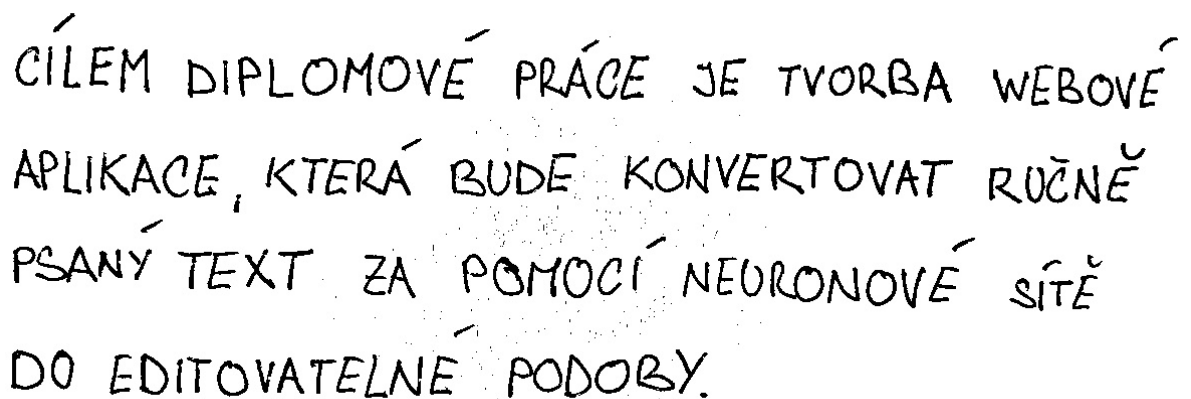 CÍLEM DIPLOMOVÉ PRÁCE JE TVORBA WEBOVÉ
APLIKACE, KTERÁ BUDE KONVERTOVAT RUČNĚ
PSANÝ TEXT ZA POMOCÍ NEURONOVÉ SÍTĚ
DO EDITOVATELNÉ PODOBY.